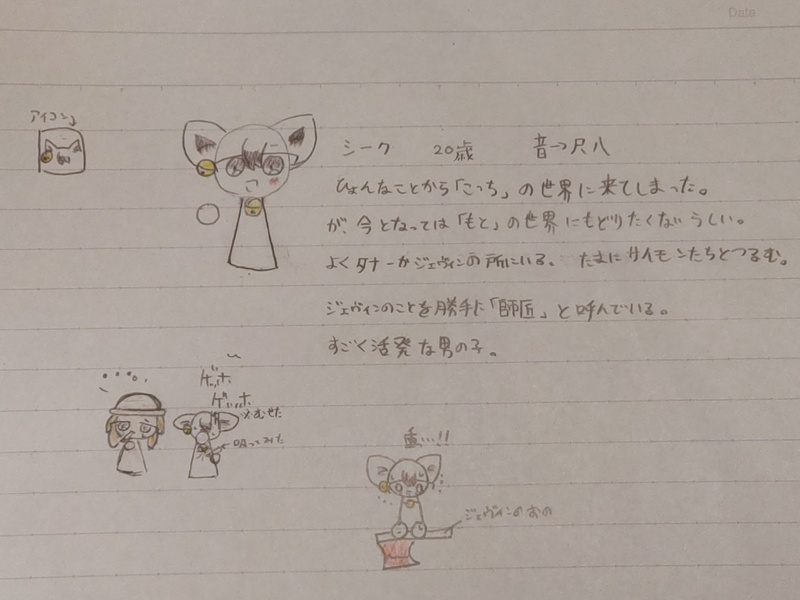 Date
アイコン♩
シーク 20歳 音→尺八
ひょんなことから「こっち」の世界に来てしまった。
が、今となっては「もと」の世界にもどりたくないらしい。
よくタナーかジェヴィンの所にいる。 たまにサイモンたちとつるむ。
ジェヴィンのことを勝手に「師匠」と呼んでいる。
すごく活発な男の子。
ゲッホ
ゲッホ
※むせた
吸ってみた
重い!!
ジェヴィンのおの